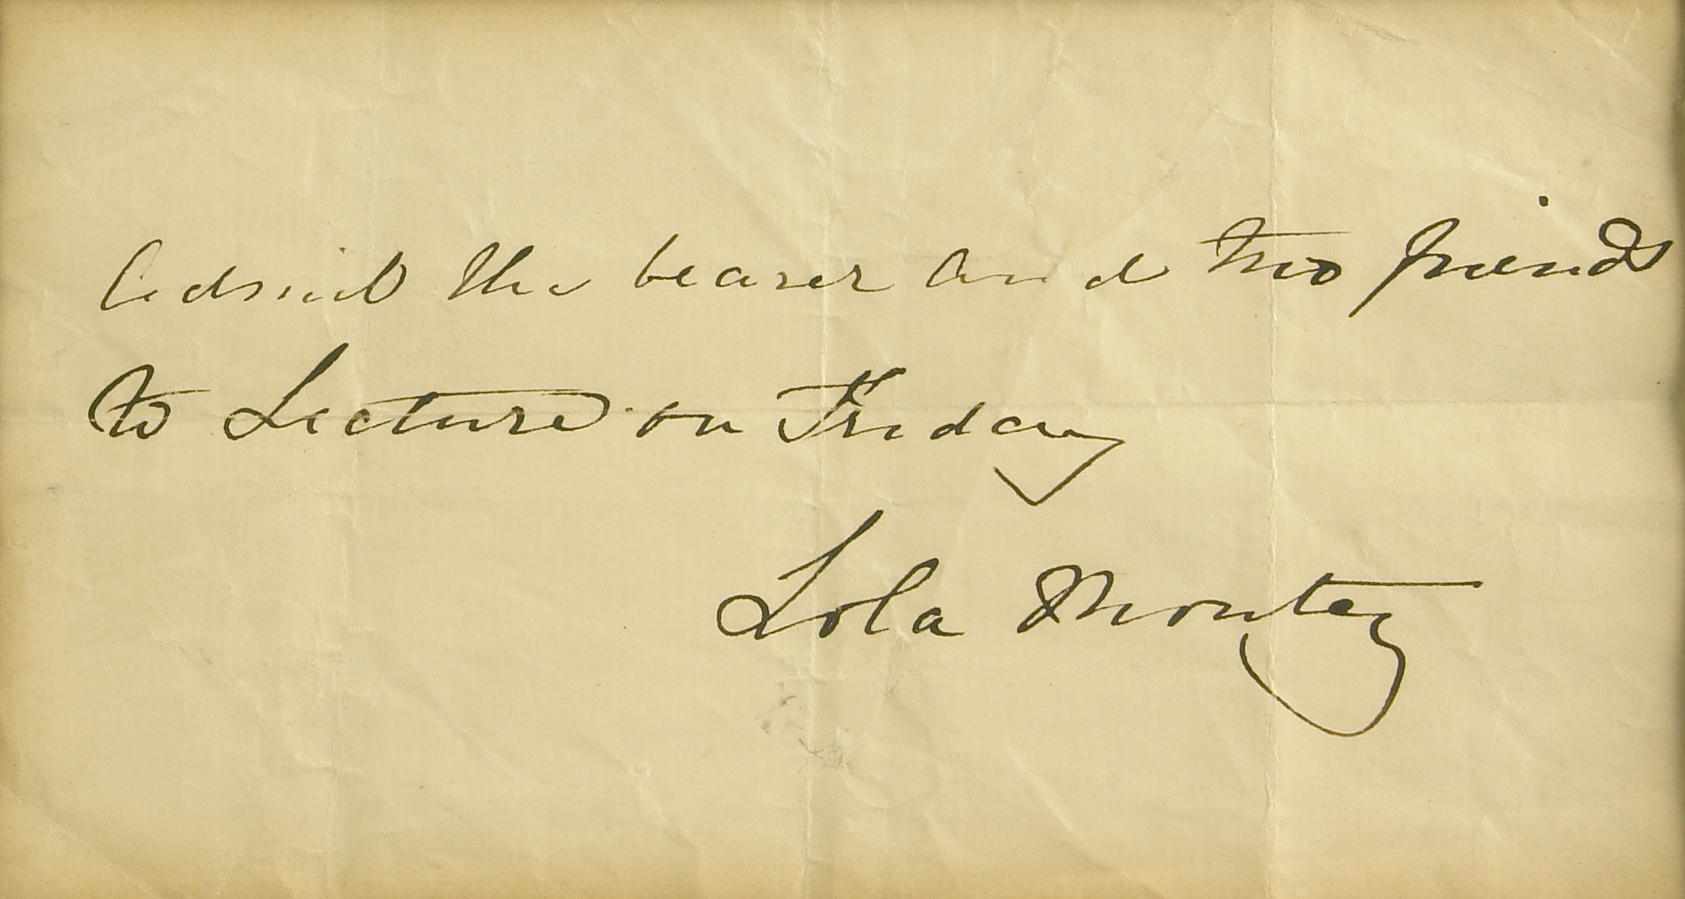 Admit the bearer and two friends
to Lecture on Friday
Lola Montez